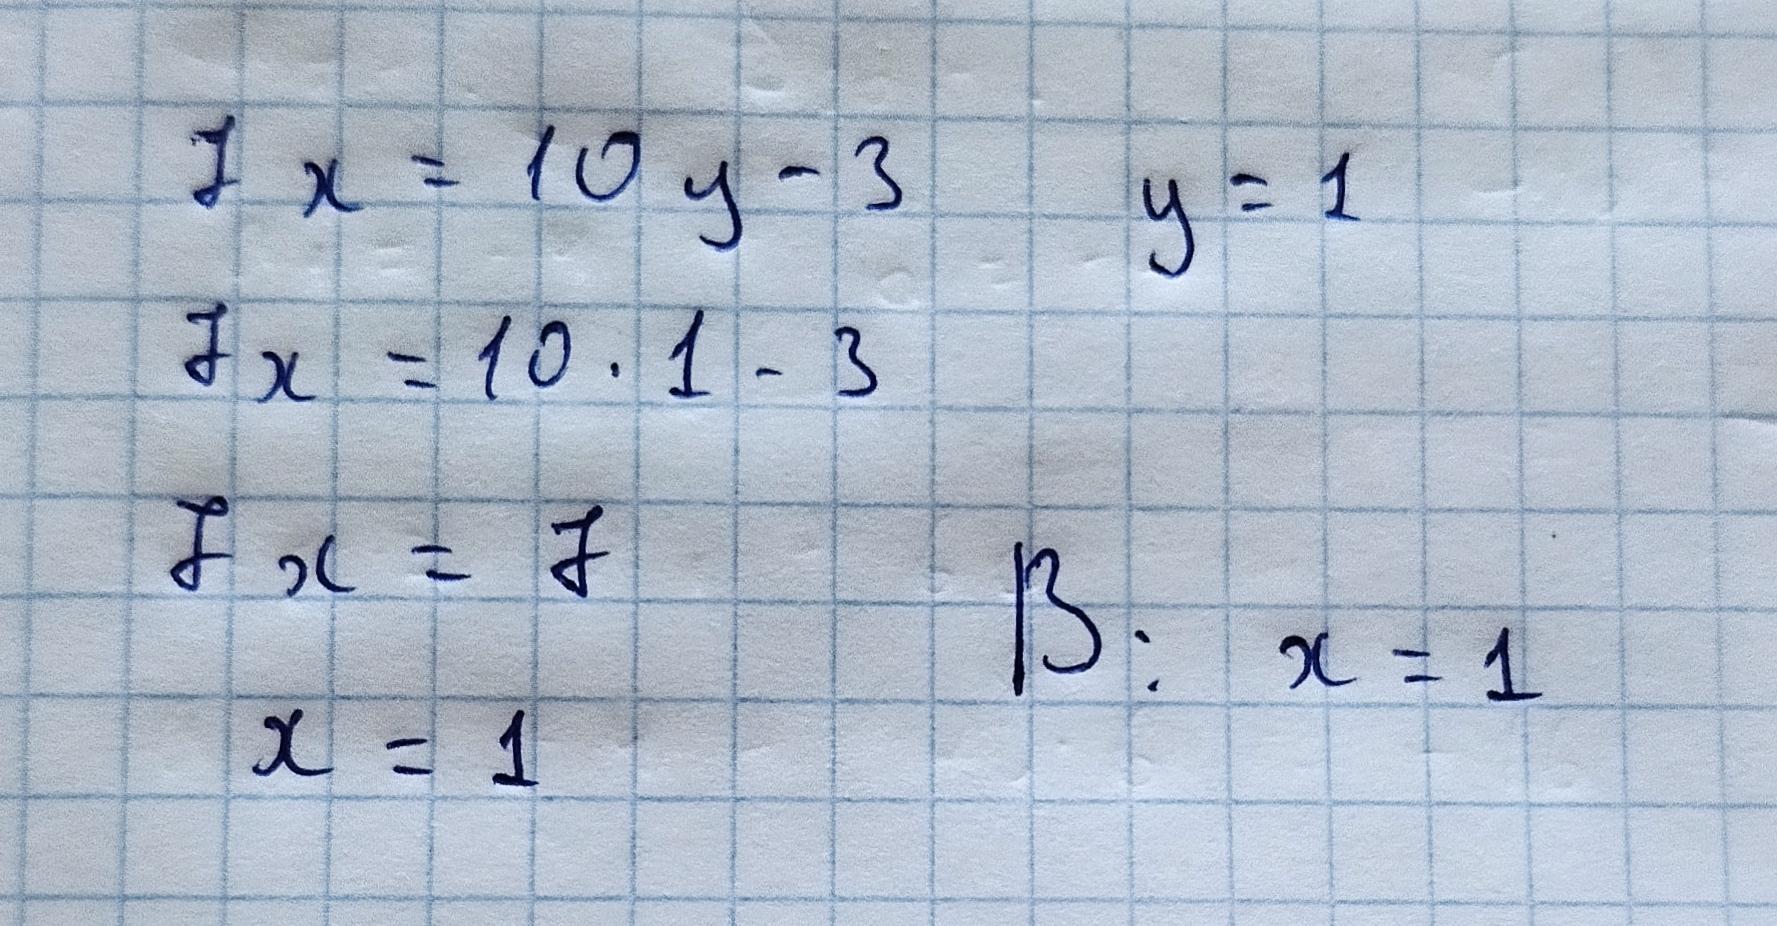 7x = 10y - 3 y = 1
7x = 10 · 1 - 3
7x = 7
В: x = 1
x = 1